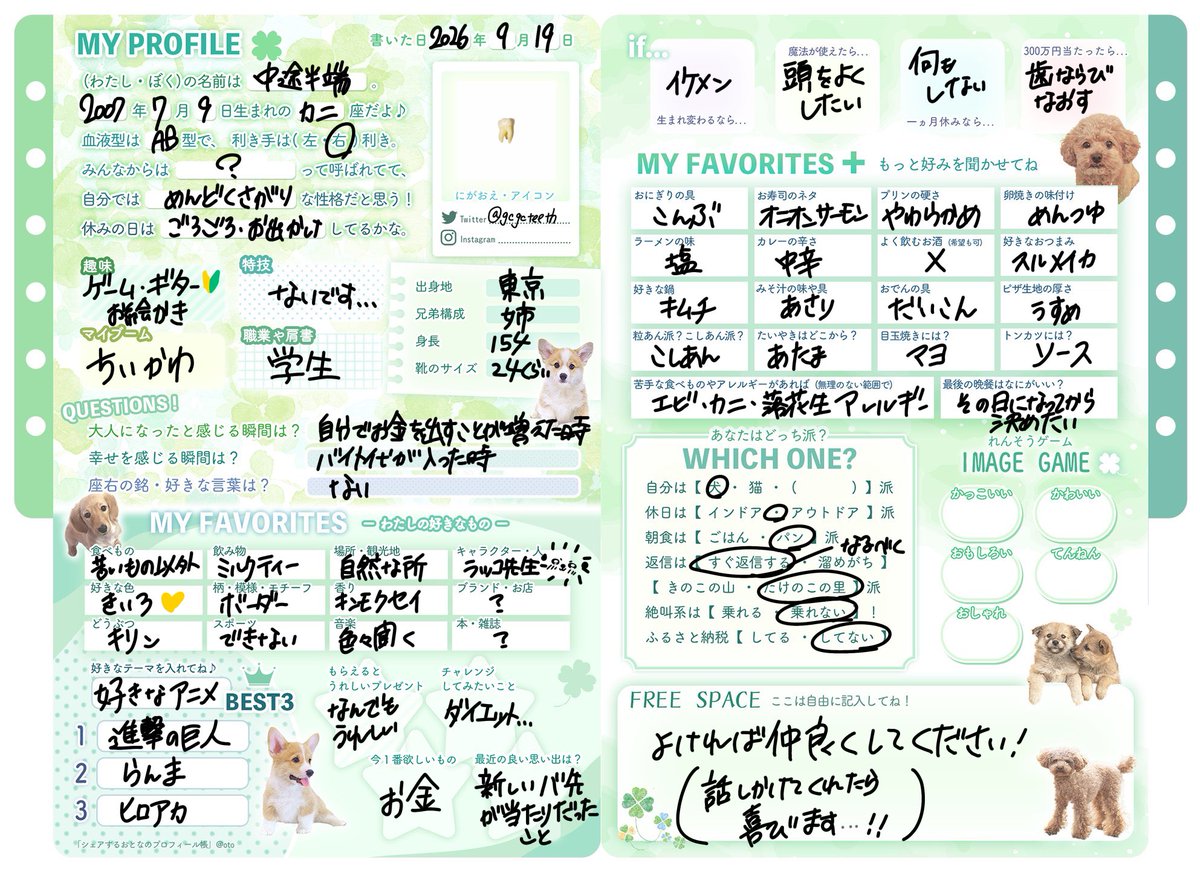 MY PROFILE
書いた日 2026年 9月 19日
(わたし・ぼく)の名前は 中途半端 。
2007年 7月 9日生まれの カニ 座だよ♪
血液型は AB 型で、利き手は(左・右)利き。
みんなからは ? って呼ばれてて、
自分では めんどくさがり な性格だと思う!
休みの日は ごろごろ・お出かけ してるかな。
にがおえ・アイコン
Twitter @gc.gc.teeth
Instagram
趣味
ゲーム・ギター🔰
お絵かき
特技
ないです...
マイブーム
ちいかわ
職業や肩書
学生
出身地 東京
兄弟構成 姉
身長 154
靴のサイズ 24ぐらい
QUESTIONS!
大人になったと感じる瞬間は? 自分でお金を出すことが増えた時
幸せを感じる瞬間は? バイト代が入った時
座右の銘・好きな言葉は? ない
MY FAVORITES -わたしの好きなもの-
食べもの 苦いもの以外
飲み物 ミルクティー
場所・観光地 自然な所
キャラクター・人 ラッコ先生
好きな色 きいろ💛
柄・模様・モチーフ ボーダー
香り キンモクセイ
ブランド・お店 ?
どうぶつ キリン
スポーツ できない
音楽 色々聞く
本・雑誌 ?
好きなテーマを入れてね♪
好きなアニメ BEST3
1 進撃の巨人
2 らんま
3 ヒロアカ
もらえると
うれしいプレゼント
なんでも
うれしい
チャレンジ
してみたいこと
ダイエット...
今1番欲しいもの
お金
最近の良い思い出は?
新しいバ先
が当たりだった
こと
「シェアするおとなのプロフィール帳」@oto
if...
イケメン
生まれ変わるなら...
魔法が使えたら...
頭をよく
したい
何も
しない
一ヵ月休みなら...
300万円当たったら...
歯ならび
なおす
MY FAVORITES + もっと好みを聞かせてね
おにぎりの具 こんぶ
お寿司のネタ オニオンサーモン
プリンの硬さ やわらかめ
卵焼きの味付け めんつゆ
ラーメンの味 塩
カレーの辛さ 中辛
よく飲むお酒(希望も可) ×
好きなおつまみ スルメイカ
好きな鍋 キムチ
みそ汁の味や具 あさり
おでんの具 だいこん
ピザ生地の厚さ うすめ
粒あん派?こしあん派? こしあん
たいやきはどこから? あたま
目玉焼きには? マヨ
トンカツには? ソース
苦手な食べものやアレルギーがあれば(無理のない範囲で)
エビ・カニ・落花生 アレルギー
最後の晩餐はなにがいい?
その日になってから
決めたい
あなたはどっち派?
WHICH ONE?
自分は【 犬 ・ 猫 ・( )】派
休日は【 インドア ・ アウトドア 】派
朝食は【 ごはん ・ パン 】派
なるべく
返信は【 すぐ返信する ・ 溜めがち 】
【 きのこの山 ・ たけのこの里 】派
絶叫系は【 乗れる ・ 乗れない 】!
ふるさと納税【 してる ・ してない 】
れんそうゲーム
IMAGE GAME
かっこいい
かわいい
おもしろい
てんねん
おしゃれ
FREE SPACE ここは自由に記入してね!
よければ仲良くしてください!
(話しかけてくれたら
喜びます...!!)